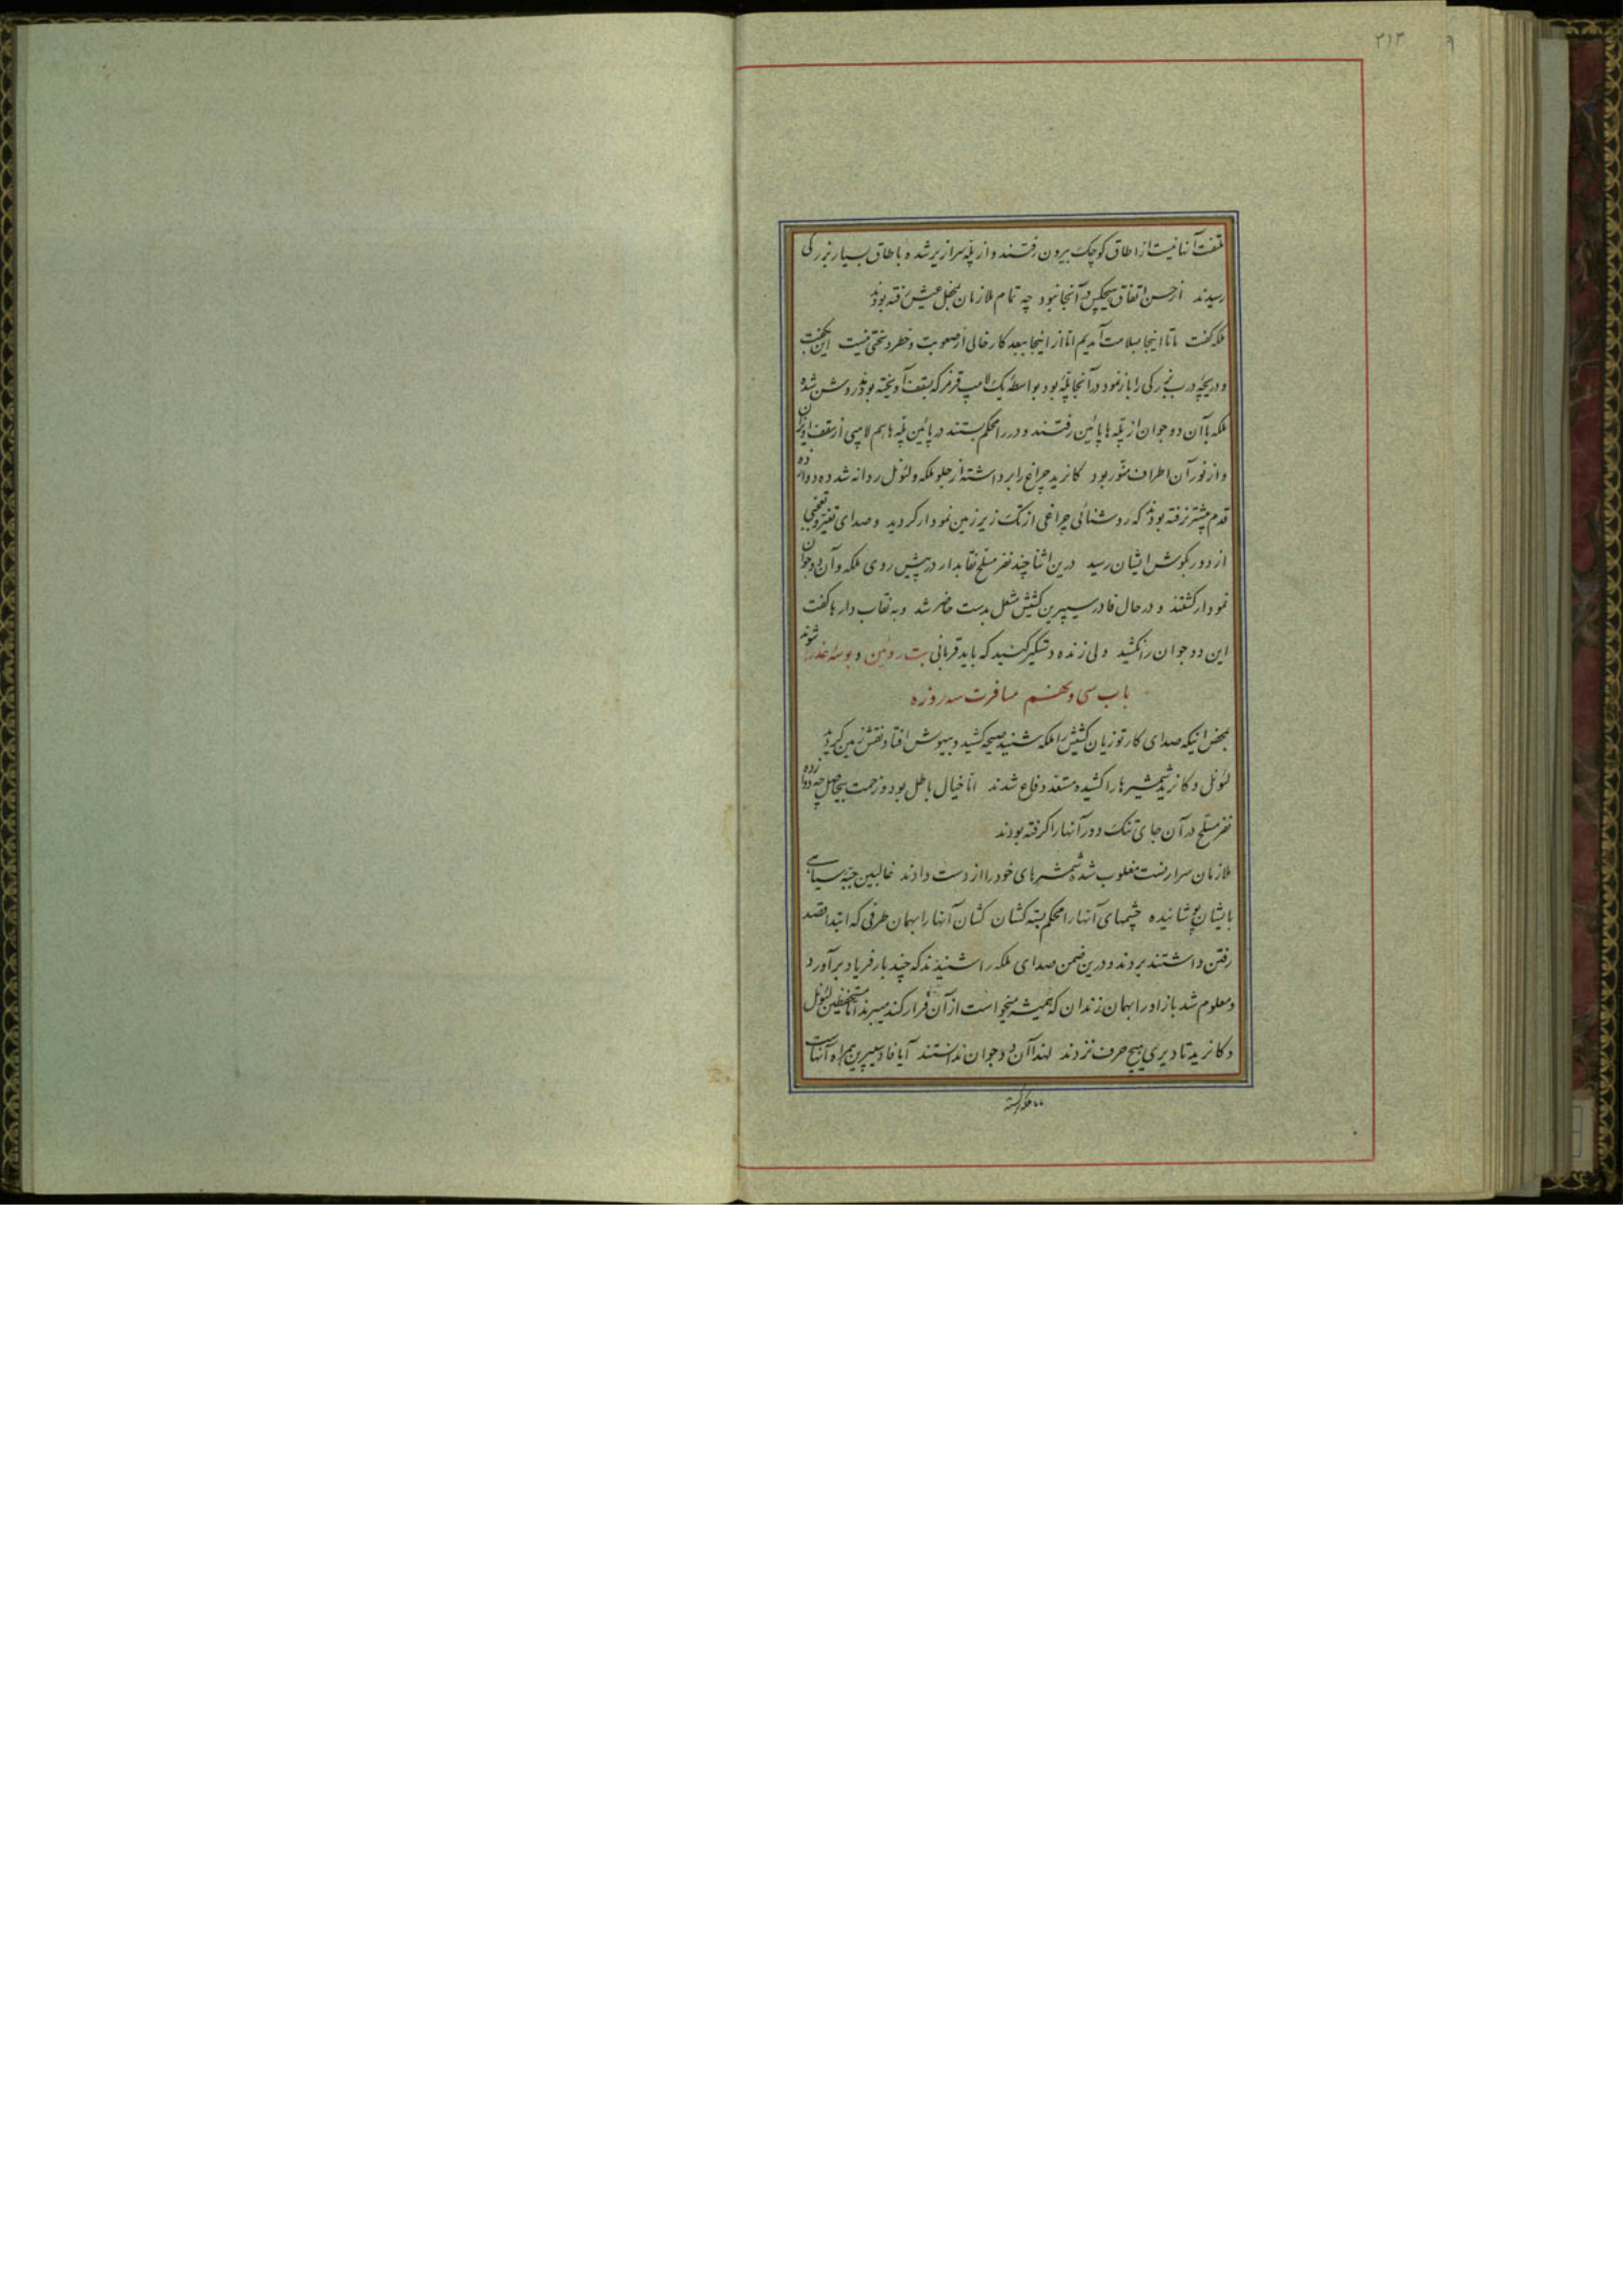 ۲۱۳
ملتفت آنها نیست از اطاق کوچک بیرون رفتند و از پله سرازیر شده باطاق بسیار بزرگی
رسیدند از حسن اتفاق هیچکس در آنجا نبود چه تمام ملازمان بمحفل عیش رفته بودند
ملکه گفت ما تا اینجا بسلامت آمدیم اما از اینجا ببعد کار خالی از صعوبت و خطر و سختی نیست این بگفت
و دریچه درب بزرگی را باز نمود در آنجا پله بود بواسطه یک لامپ قرمز که بسقف آویخته بودند روشن شده
ملکه با آن دو جوان از پله ها پائین رفتند و در را محکم بستند در پائین پله ها هم لامپی از سقف آویزان
و از نور آن اطراف منور بود کانرید چراغ را برداشته از جلو ملکه و لئونل روانه شد ده دوازده
قدم بیشتر نرفته بودند که روشنائی چراغی از تک زیرزمین نمودار گردید و صدای تغیر و تعجبی
از دور بگوش ایشان رسید درین اثنا چند نفر مسلح نقابدار در پیش روی ملکه و آن دو جوان
نمودار گشتند و در حال فادر سیپرین کشیش مشعل بدست حاضر شد و به نقاب دارها گفت
این دو جوان را نکشید ولی زنده دستگیر کنید که باید قربانی بت روئین و بوسه عذرا شوند
باب سی و پنجم مسافرت سه روزه
بمحض اینکه صدای کارتوزیان کشیش را ملکه شنید صیحه کشید و بیهوش افتاد نقش زمین گردید
لئونل و کانرید شمشیرها را کشیده مستعد دفاع شدند اما خیال باطل بود و زحمت بیحاصل چه دوازده
نفر مسلح در آن جای تنگ دور آنها را گرفته بودند
ملازمان سر ارنست مغلوب شده شمشیرهای خود را از دست دادند غالبین جبه سیاهی
بایشان پوشانیده چشمهای آنها را محکم بسته کشان کشان آنها را بهمان طرفی که ابتدا قصد
رفتن داشتند بردند و درین ضمن صدای ملکه را شنیدند که چند بار فریاد برآورد
و معلوم شد باز او را بهمان زندان که همیشه میخواست از آن فرار کند میبرند اما مستحفظین لئونل
و کانرید تا دیری هیچ حرف نزدند لهذا آن دو جوان ندانستند آیا فادر سیپرین همراه آنهاست